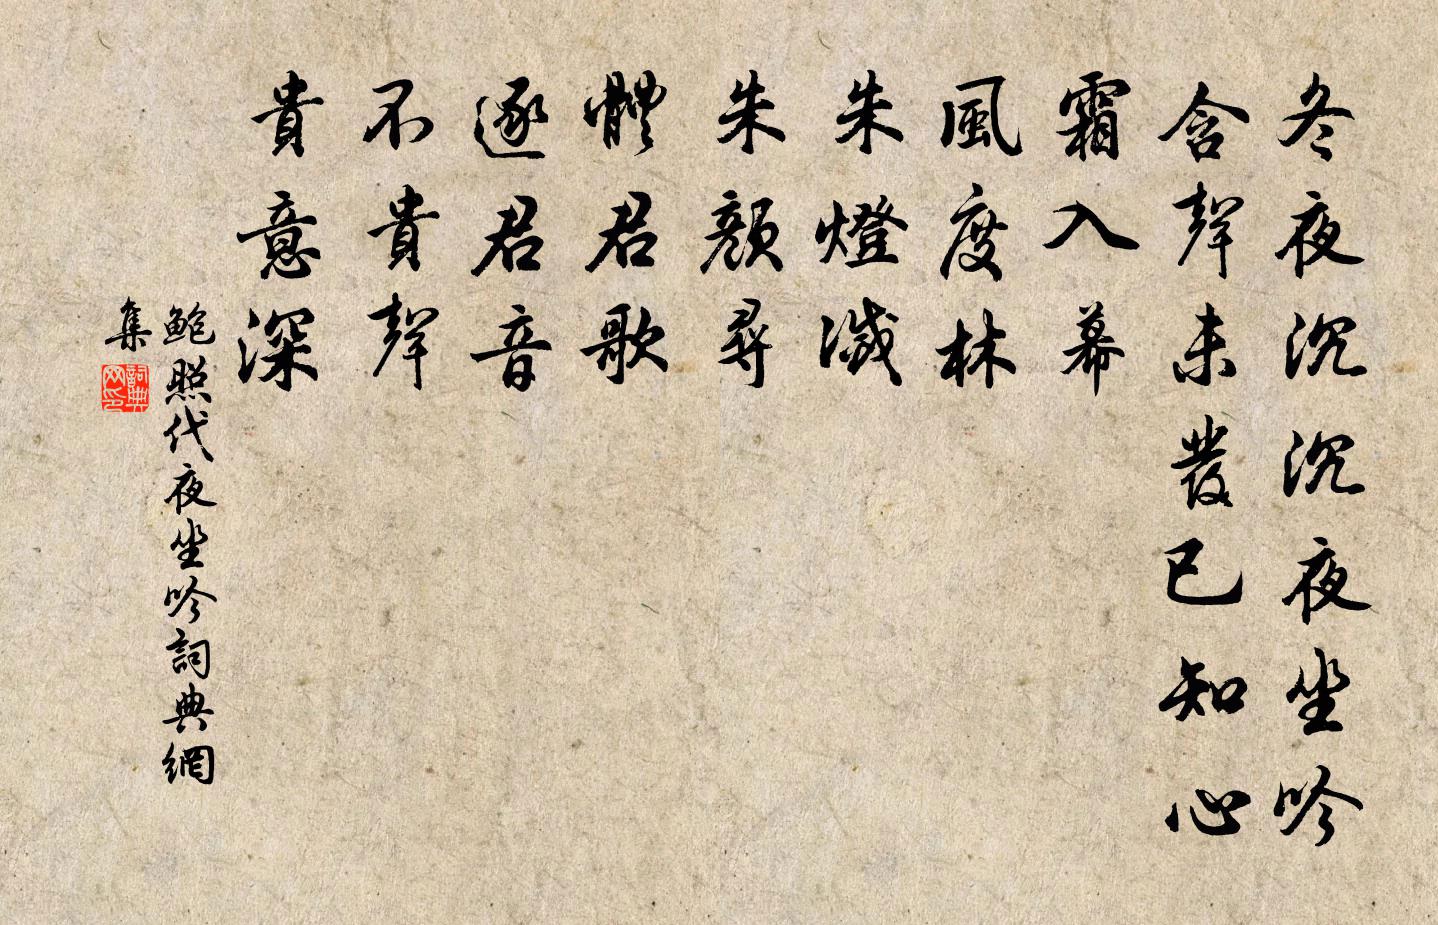 冬夜沉沉夜坐吟
含聲未發已知心
霜入幕
風度林
朱燈滅
朱顏尋
體君歌
逐君音
不貴聲
貴意深
鮑照代夜坐吟詞典網
集
詞典网印